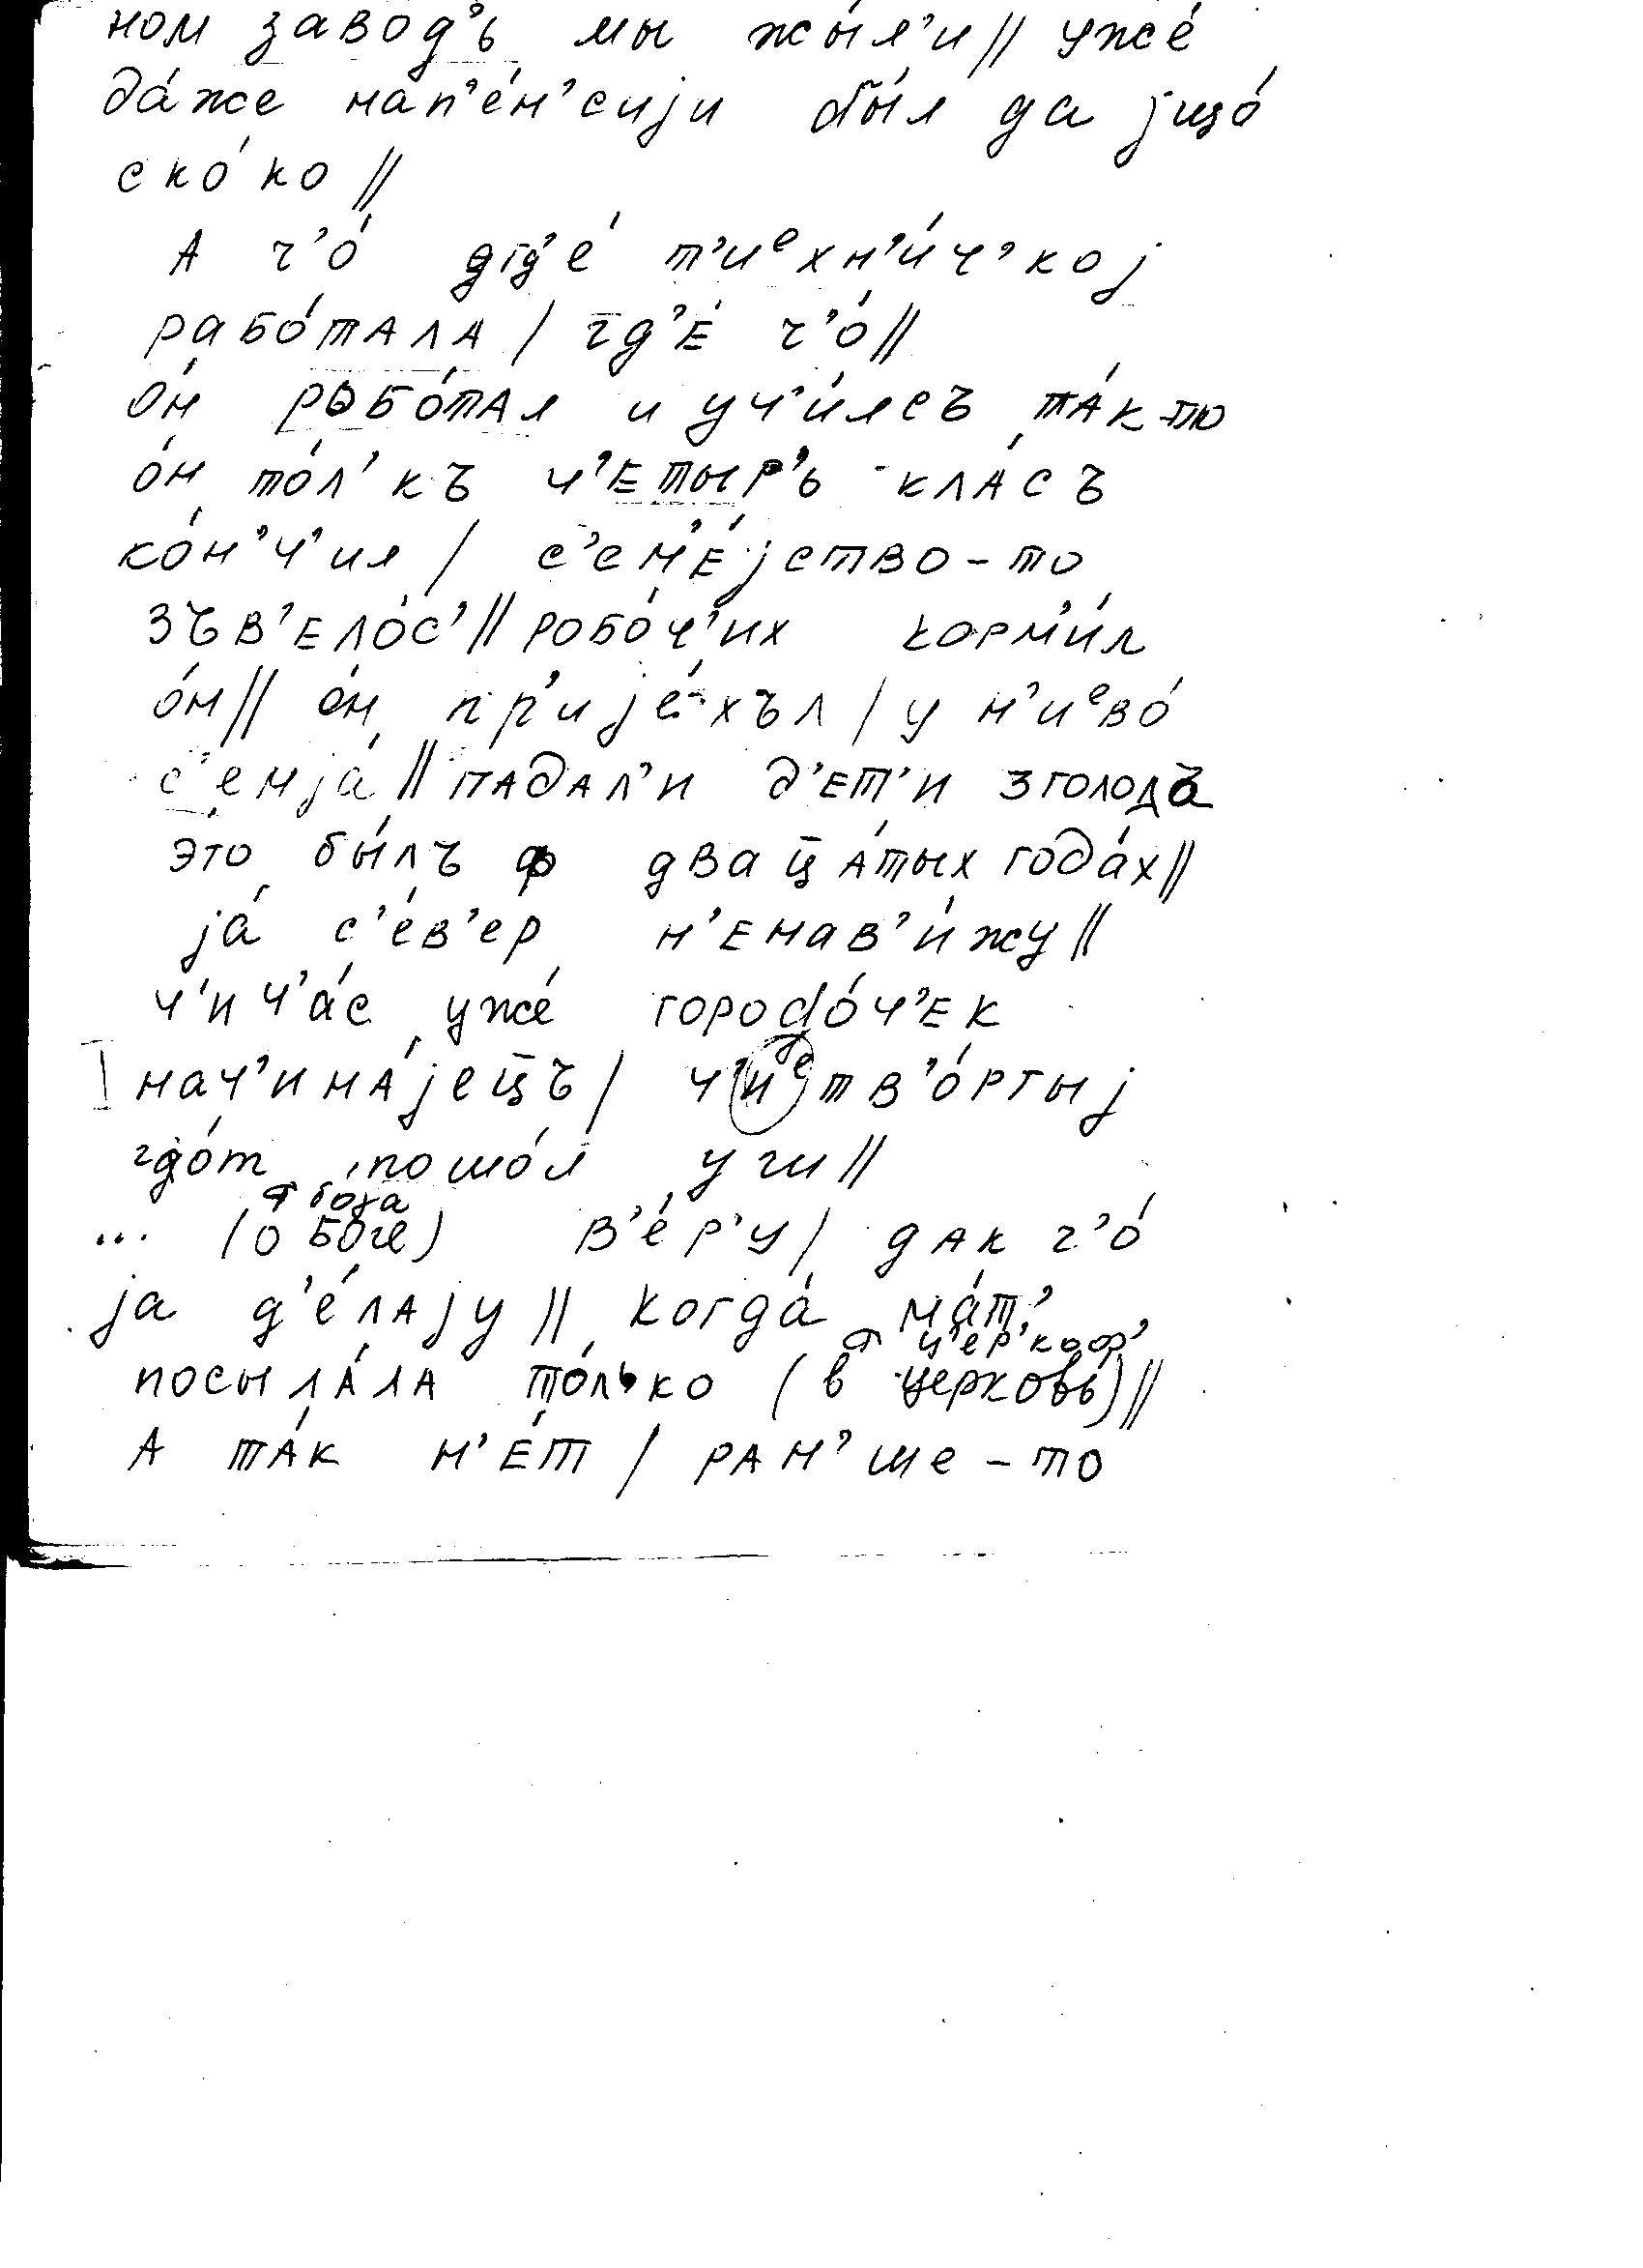 ном завод'ь мы жы́л'и // уже́
да́же нап'е́н'сиjи бы́л да jщо́
ско́ко //
А ч'о́ где́ т'иᵉхн'и́ч'коj
рабо́тАлА / гд'Е́ ч'о́ //
о́н робо́тАл и уч'и́лсъ та́к-то
о́н то́л'къ ч'Етыр'ь клА́съ
ко́н'ч'ил / с'ем'Е́jство-то
зъв'Ело́с' // робо́ч'их корм'и́л
о́н // о́н пр'иjе́хъл / у н'иᵉво́
с'емjа́ // пАдАл'и д'Ет'и зголодъ
э́то бы́лъ ф двац̄А́тых года́х //
jа́ с'е́в'ер н'Енав'и́жу //
ч'ич'а́с уже́ городо́ч'Ек
нач'инА́jец̄ъ / ч'иᵉтв'о́ртыj
го́т пошо́л уш //
ф бо́га
... (о Боге) в'е́р'у / дАк ч'о́
jа д'е́лАjу // когда́ ма́т'
ф ц'ер'коф'
посылА́лА то́лько (в церковь) //
А тА́к н'Е́т / рАн'ше-то